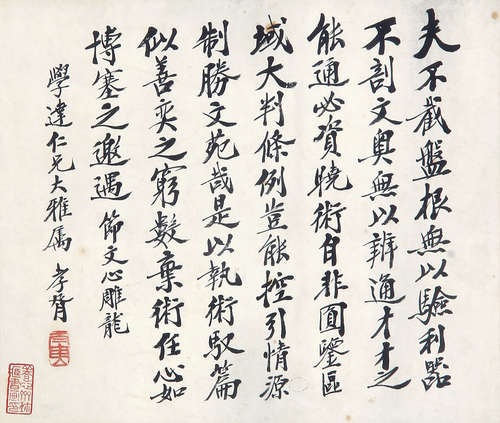 夫不截盤根無以驗利器
不剖文奧無以辨通才才之
能通必資曉術自非圓鑒區
域大判條例豈能控引情源
制勝文苑哉是以執術馭篇
似善奕之窮數棄術任心如
博塞之邀遇 節文心雕龍
學達仁兄大雅属 孝胥